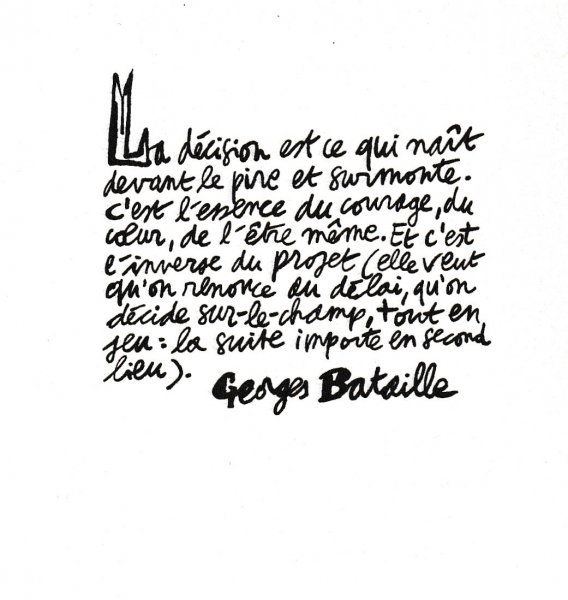 La décision est ce qui naît
devant le pire et surmonte.
C'est l'essence du courage, du
cœur, de l'être même. Et c'est
l'inverse du projet (elle veut
qu'on renonce au délai, qu'on
décide sur-le-champ, tout en
jeu : la suite importe en second
lieu).
Georges Bataille